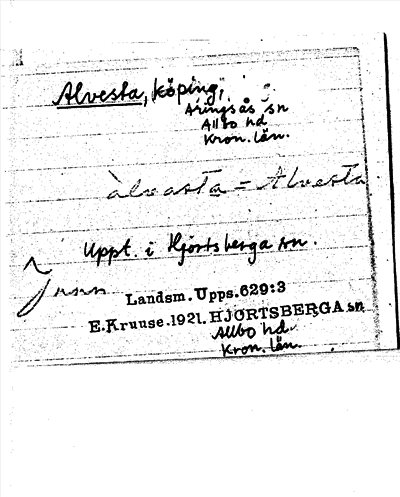 Alvesta, köping,
Aringsås sn
Allbo hd
Kron. län.
àlvasta = Alvesta
Uppt. i Hjortsberga sn.
Landsm. Upps.629:3
E.Kruuse.1921. HJORTSBERGA sn
Allbo hd
Kron. län.